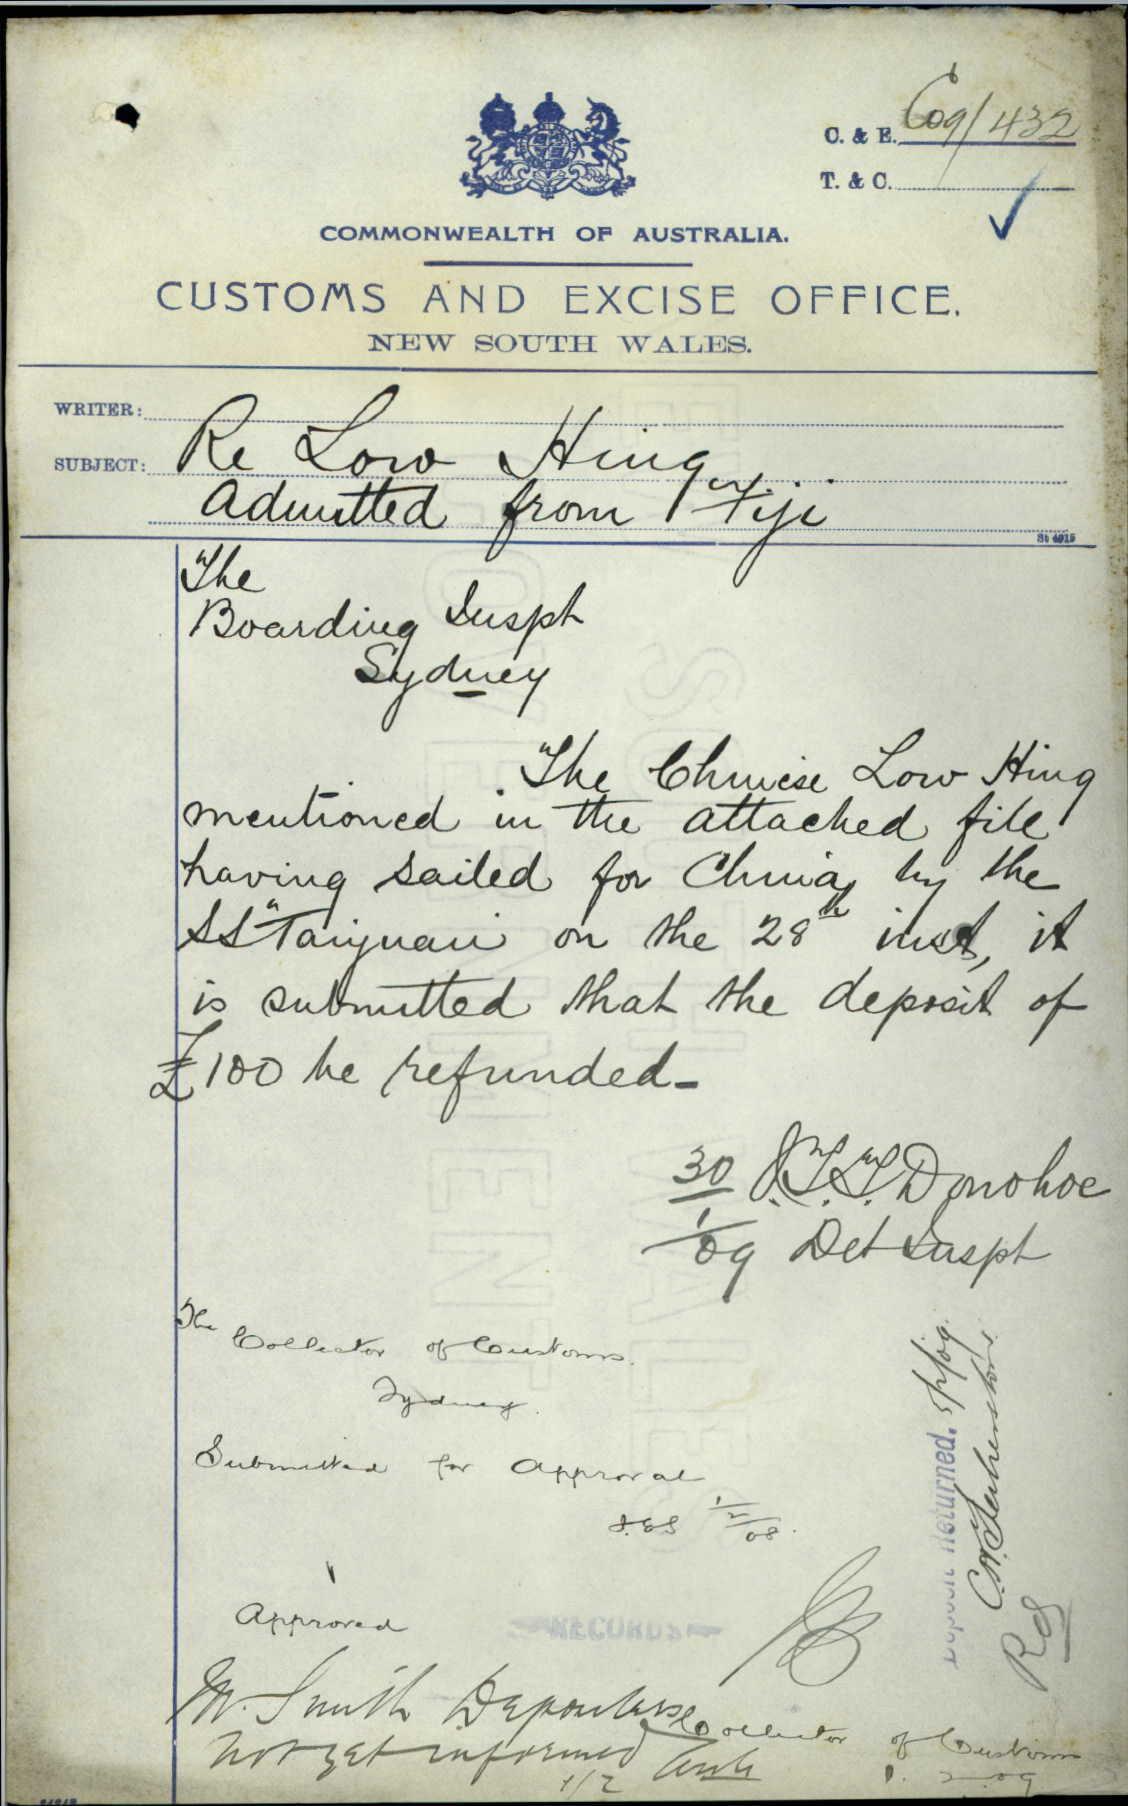 C. & E. C09/432
T. & C.
COMMONWEALTH OF AUSTRALIA.
CUSTOMS AND EXCISE OFFICE.
NEW SOUTH WALES.
WRITER:
SUBJECT: Re Low Hing
Admitted from Fiji
St 4915
The
Boarding Inspt
Sydney
The Chinese Low Hing
mentioned in the attached file
having sailed for China by the
SS "Taiyuan on the 28th inst, it
is submitted that the deposit of
£100 be refunded_
30 J.T.T. Donohoe
1/09 Det Inspt
The
Collector of Customs.
Sydney.
Submitted for Approval
1/2/08.
Approved
RECORDS
Mr. Smith Depositors
not yet informed
1/2
Collector of Customs
1. 2. 09
Deposit Returned.